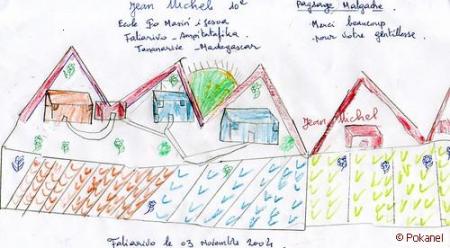 Jean Michel 10è
Ecole Po Marin'i sesva
Faliarivo - Ampitatafika
Tananarive - Madagascar
Paysage Malgache
Merci beaucoup
pour votre gentillesse
Jean Michel
Faliarivo le 03 novembre 2004
© Pokanel